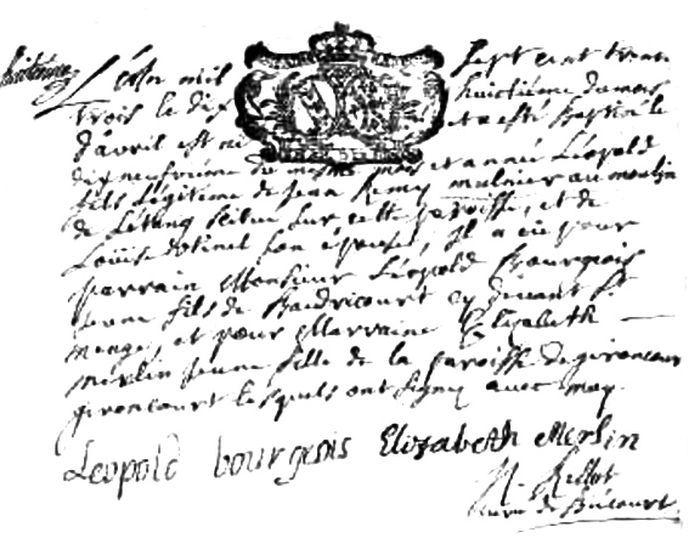 L'an mil sept cent trente
trois le dix huitième du mois
d'avril est né et a esté baptisé le
dix neufvième du mesme mois et année Léopold
fils légitime de Jean Remy mulnier au moulin
de Létang scitué sur cette paroisse, et de
Louise son épouse, Il a eu pour
parrain Monsieur Léopold Bourgeois
jeune fils de Baudricourt cy devant St
Menge, et pour Marraine Elizabeth
Merlin jeune fille de la paroisse de gironcour
gironcourt lesquels ont signez avec moy.
Leopold bourgeois Elizabeth Merlin
N. Rellot
curé de